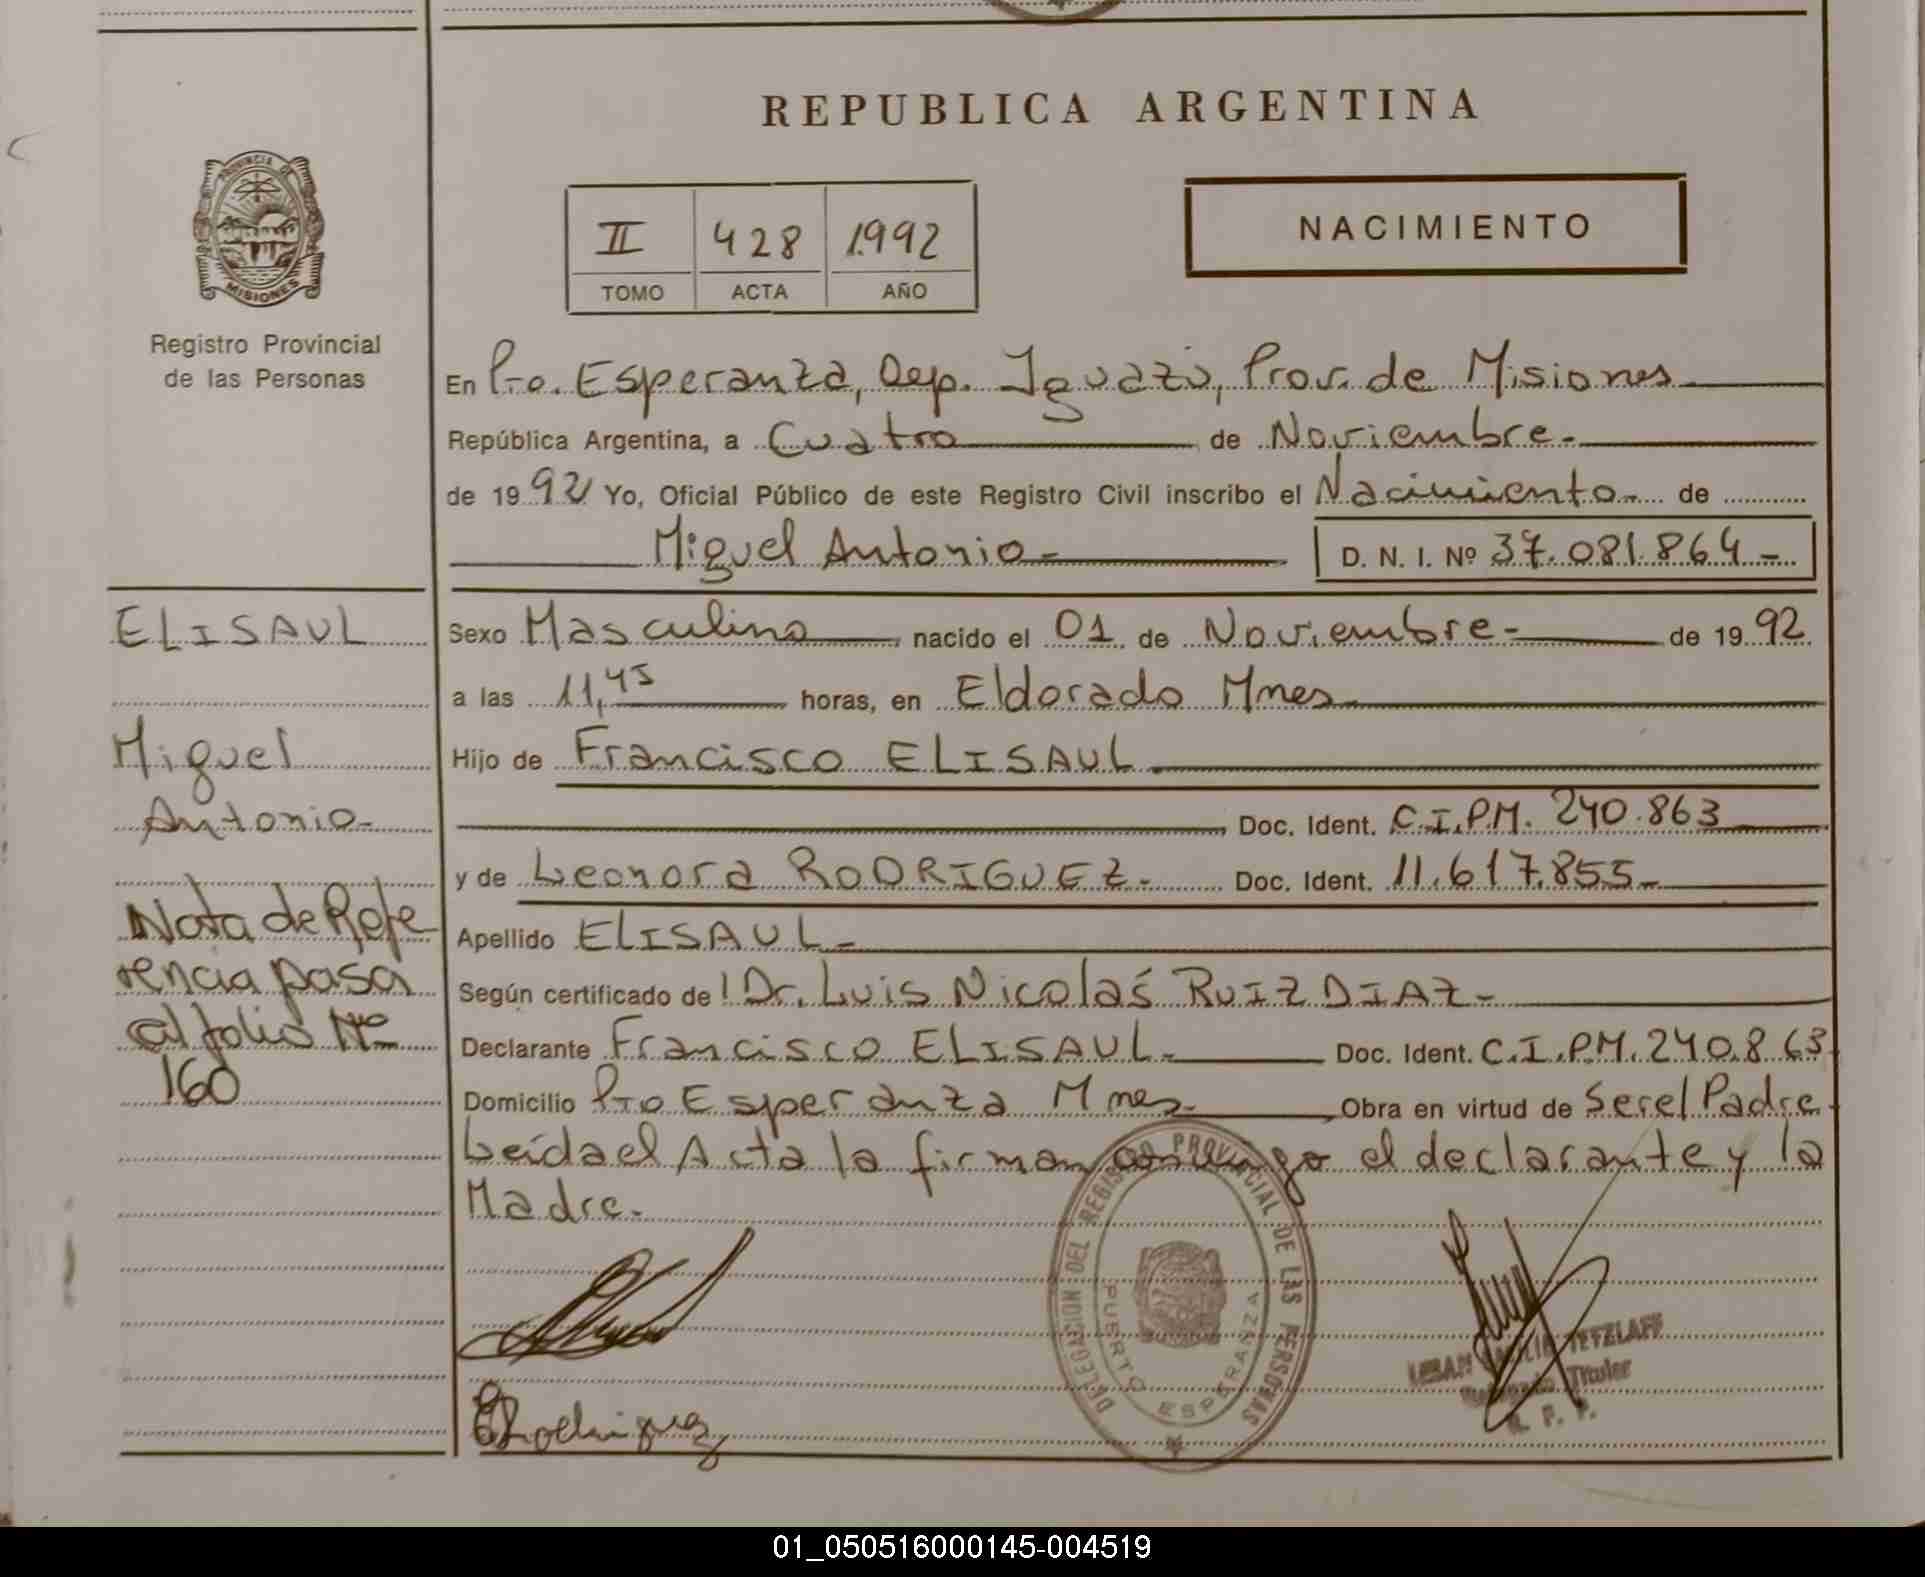 REPUBLICA ARGENTINA
PROVINCIA DE
MISIONES
Registro Provincial
de las Personas
II 428 1992
TOMO ACTA AÑO
NACIMIENTO
En Pto. Esperanza, Dep. Iguazú, Prov. de Misiones
República Argentina, a Cuatro de Noviembre.-
de 1992 Yo, Oficial Público de este Registro Civil inscribo el Nacimiento.- de
Miguel Antonio.- D. N. I. Nº 37.081.864.-
ELISAUL
Miguel
Antonio.-
Nota de Refe
rencia pasa
al folio Nº
160
Sexo Masculino, nacido el 01 de Noviembre.- de 1992
a las 11,45 horas, en Eldorado Mnes.
Hijo de Francisco ELISAUL
Doc. Ident. C.I.P.M. 240.863
y de Leonora RODRIGUEZ.- Doc. Ident. 11.617.855.-
Apellido ELISAUL.-
Según certificado de: Dr. Luis Nicolás RUIZ DIAZ.-
Declarante Francisco ELISAUL.- Doc. Ident. C.I.P.M. 240.863
Domicilio Pto Esperanza Mnes.- Obra en virtud de Ser el Padre.
Leída el Acta la firman conmigo el declarante y la
Madre.-
DELEGACION DEL REGISTRO PROVINCIAL DE LAS PERSONAS
PUERTO ESPERANZA
TETZLAFF
Titular
R. P. P.
Rodriguez
01_050516000145-004519